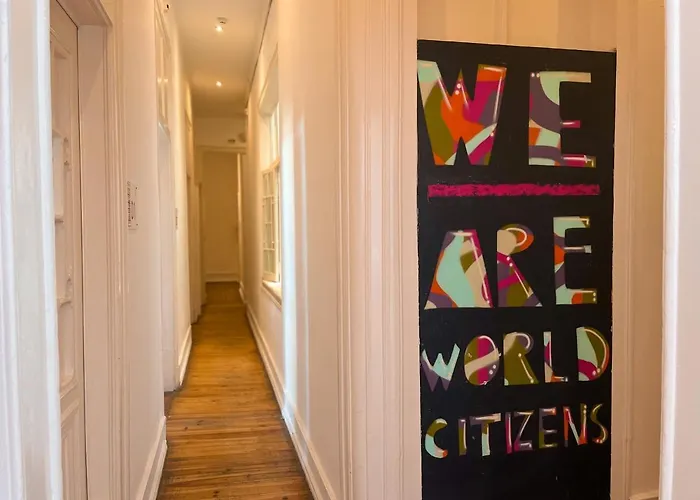 WE
ARE
WORLD
CITIZENS